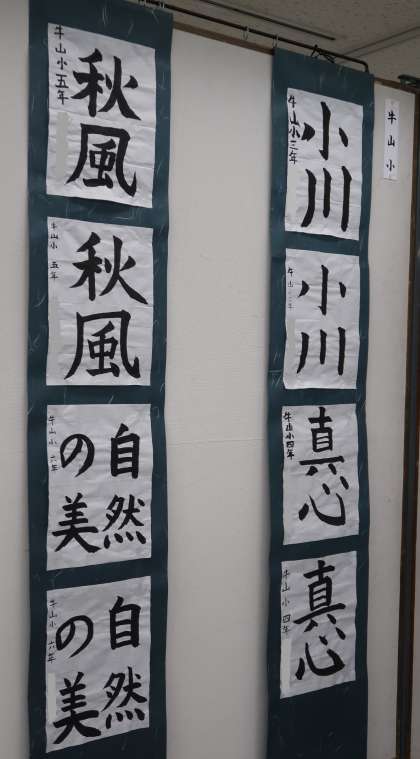 牛山小
小川
牛山小三年
小川
牛山小三年
真心
牛山小四年
真心
牛山小四年
秋風
牛山小五年
秋風
牛山小五年
自然
の美
牛山小六年
自然
の美
牛山小六年